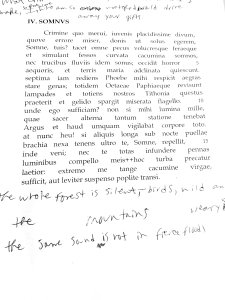 away your gift
IV. SOMNVS
Crimine quo merui, iuvenis placidissime divum,
quove errore miser, donis ut solus egerem,
Somne, tuis? tacet omne pecus volucresque feraeque
et simulant fessos curvata cacumina somnos,
nec trucibus fluviis idem sonus; occidit horror 5
aequoris, et terris maria adclinata quiescunt.
septima iam rediens Phoebe mihi respicit aegras
stare genas; totidem Oetaeae Paphiaeque revisunt
lampades et totiens nostros Tithonia questus
praeterit et gelido spargit miserata flagello.
unde ego sufficiam? non si mihi lumina mille,
quae sacer alterna tantum statione tenebat
Argus et haud umquam vigilabat corpore toto.
at nunc heu! si aliquis longa sub nocte puellae
brachia nexa tenens ultro te, Somne, repellit, 15
inde veni; nec te totas infundere pennas
luminibus compello meis++hoc turba precatur
laetior: extremo me tange cacumine virgae.
sufficit, aut leviter suspenso poplite transi.
the whole forest is silent, birds, wild an
the mountains
the same sound is not in